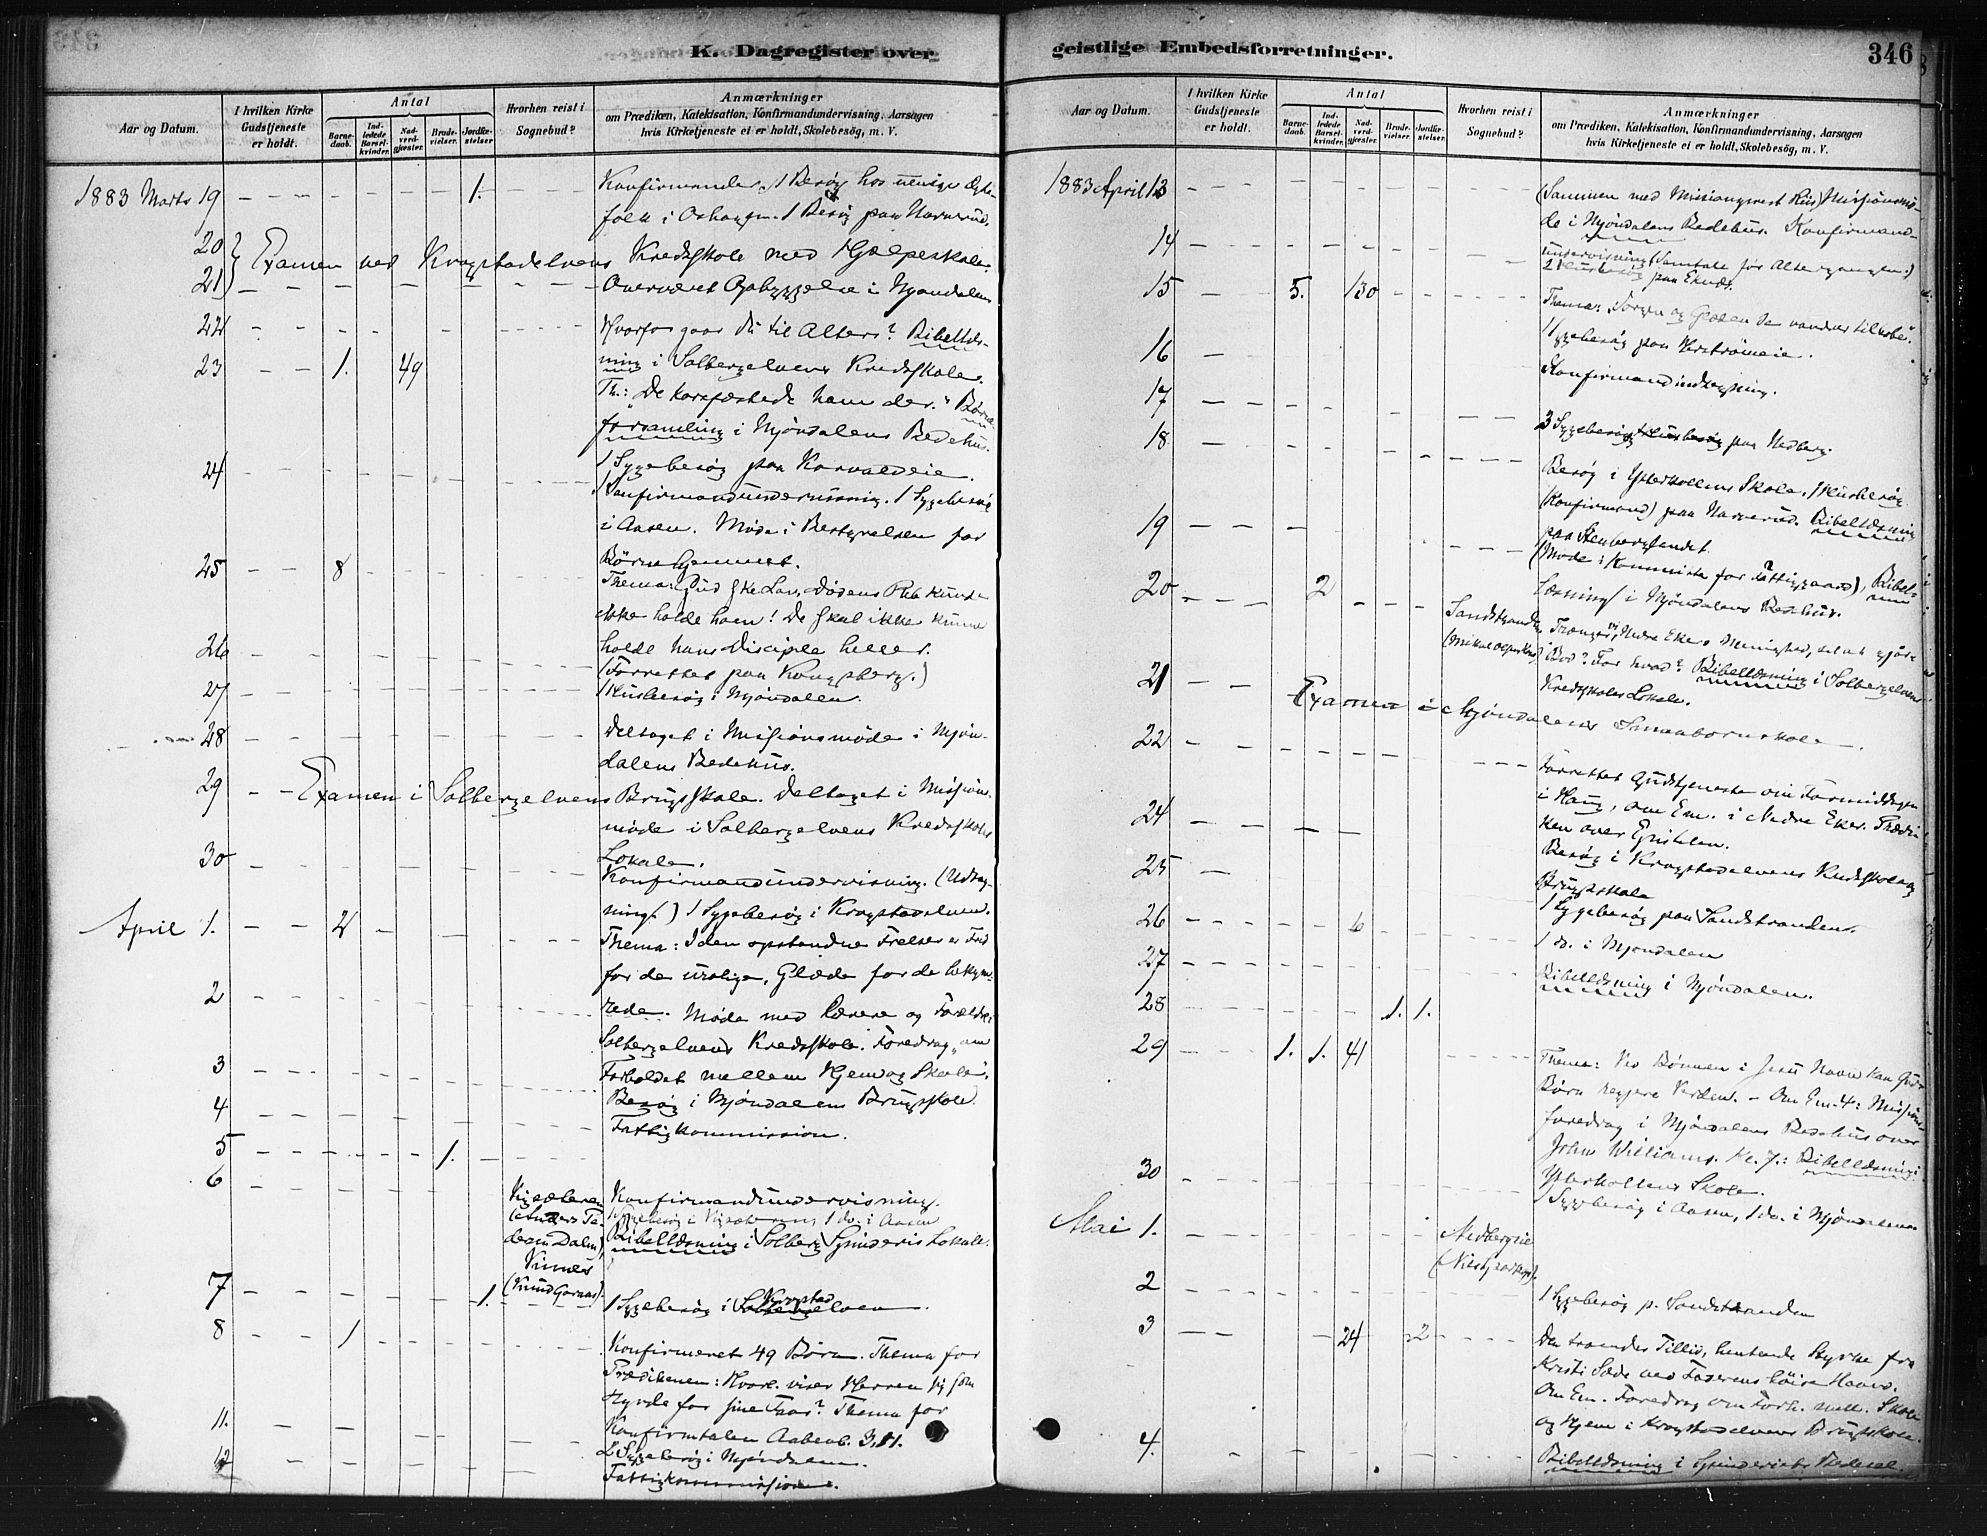 K. Dagregister over
Aar og Datum.
I hvilken Kirke Gudstjeneste er holdt.
Antal
Barnedaab.
Indledede Barselkvinder.
Nadverdgjester.
Brudevielser.
Jordfæstelser.
Hvorhen reist i Sognebud?
Anmærkninger
om Prædiken, Katekisation, Konfirmandundervisning, Aarsagen
hvis Kirketjeneste ei er holdt, Skolebesög, m. V.
1883 Marts 19 1. Konfirmander, 1 Besøg hos uenige Ægte-
folk i 1 Besøg paa Narverud.
20 Examen ved Krogstadelvens Kredsskole med Hjælpeskole.
21 Overværet Opbyggelse i Mjøndalen
22 Hvorfor gaar du til Alters? Bibellæs-
ning i Solbergelvens Kredsskole.
23 1. 49
Th.: "De korsfæstede ham der." Børne-
forsamling i Mjøndalens Bedehus.
24 1 Sygebesøg paa
Konfirmandundervisning. 1 Sygebesøg
i Aasen. Møde i Bestyrelsen for
Børnehjemmet.
25 8 Thema: Gud ske Lov, Dødens Reb kunde
ikke holde ham! De skal ikke kunne
holde hans Disciple heller.
26 (Forrettet paa Kongsberg.)
27 1 Husbesøg i Mjøndalen.
28 Deltaget i Missionsmøde i Mjøn-
dalens Bedehus.
29 Examen i Solbergelvens Brugsskole. Deltaget i Missions-
møde i Solbergelvens Kredsskoles
Lokale.
30 Konfirmandundervisning. (Udtag-
ning.) 1 Sygebesøg i Krogstadelven.
April 1. 2 Thema: I den opstandne Frelser er Fred
for de urolige, Glæde for de bekym-
rede.
2 Møde med Lærere og Forældre i
Solbergelvens Kredsskole. Foredrag "om
Forholdet mellem Hjem og Skole".
3 Besøg i Mjøndalens Brugsskole.
4 Fattigkommission.
5 1.
6 Konfirmandundervisning.
1 Sygebesøg i 1 do. i Aasen
Bibellæsning i Solberg Spinderis Lokale.
7 1. 1 Sygebesøg i Krogstadelven.
8 1 Konfirmeret 49 Børn. Thema for
Prædikenen: Hvorl. viser Herren sig som
Hyrde for sine Faar? Thema for
Konfirmtalen Aabenb. 3,11.
11. 2 Sygebesøg i Mjøndalen.
12 Fattigkommission.
geistlige Embedsforretninger.
346
Aar og Datum.
I hvilken Kirke Gudstjeneste er holdt.
Antal
Barnedaab.
Indledede Barselkvinder.
Nadverdgjester.
Brudevielser.
Jordfæstelser.
Hvorhen reist i Sognebud?
Anmærkninger
om Prædiken, Katekisation, Konfirmandundervisning, Aarsagen
hvis Kirketjeneste ei er holdt, Skolebesög, m. V.
1883 April 13 (Sammen med Missionsprest Riis) Missionsmø-
de i Mjøndalens Bedehus. Konfirmand-
14 undervisning (Samtale før Altergangen.)
2 Husbesøg paa Eknes.
15 5. 130 Thema: "Sorgen og Glæden de vandre tilhobe".
16 1 Sygebesøg paa
17 Konfirmandindtegning.
18 3 Sygebesøg paa Nedberg.
Besøg i Ytterkollens Skole. 1 Husbesøg
(Konfirmand) paa Narverud. Bibellæsning
19 paa Stenberglandet.
(Møde i Kommiste for Fattiggaard), Bibel-
20 2 læsning i Mjøndalens Bedehus.
Sandstranden
Trænger vi, Nedre Ekers Menighed, til at gjøre
Bod? For hvad? Bibellæsning i Solbergelvens
21 Kredsskoles Lokale.
Examen i Mjøndalens Smaabørnskole.
22
Forrettet Gudstjeneste om Formiddagen
i Haug, om Em. i Nedre Eker. Prædi-
24 ken over Epistelen.
25 Besøg i Krogstadelvens Kredsskole og
Brugsskole
26 6 1 Sygebesøg paa Sandstranden.
27 1 do. i Mjøndalen
Bibellæsning i Mjøndalen.
28 1. 1.
29 1. 1. 41
Thema: Ved Bønnen i Jesu Navn kan Guds
Børn regjere Verden. - Om Em. 4: Missions-
foredrag i Mjøndalens Bedehus over
John Williams. Kl. 7.: Bibellæsning i
30 Ytterkollens Skole.
1 Sygebesøg i Aasen, 1 do. i Mjøndalen
Mai 1. Nedbergeie
2 1 Sygebesøg p. Sandstranden
3 24 2 Den troendes Tillid, hentende Styrke fra
Kristi Sæde ved Faderens høire Haand.
Om Em. Foredrag om Forh. mell. Skole
og Hjem i Krogstadelvens Brugsskole.
4. Bibellæsning i Spinderiets